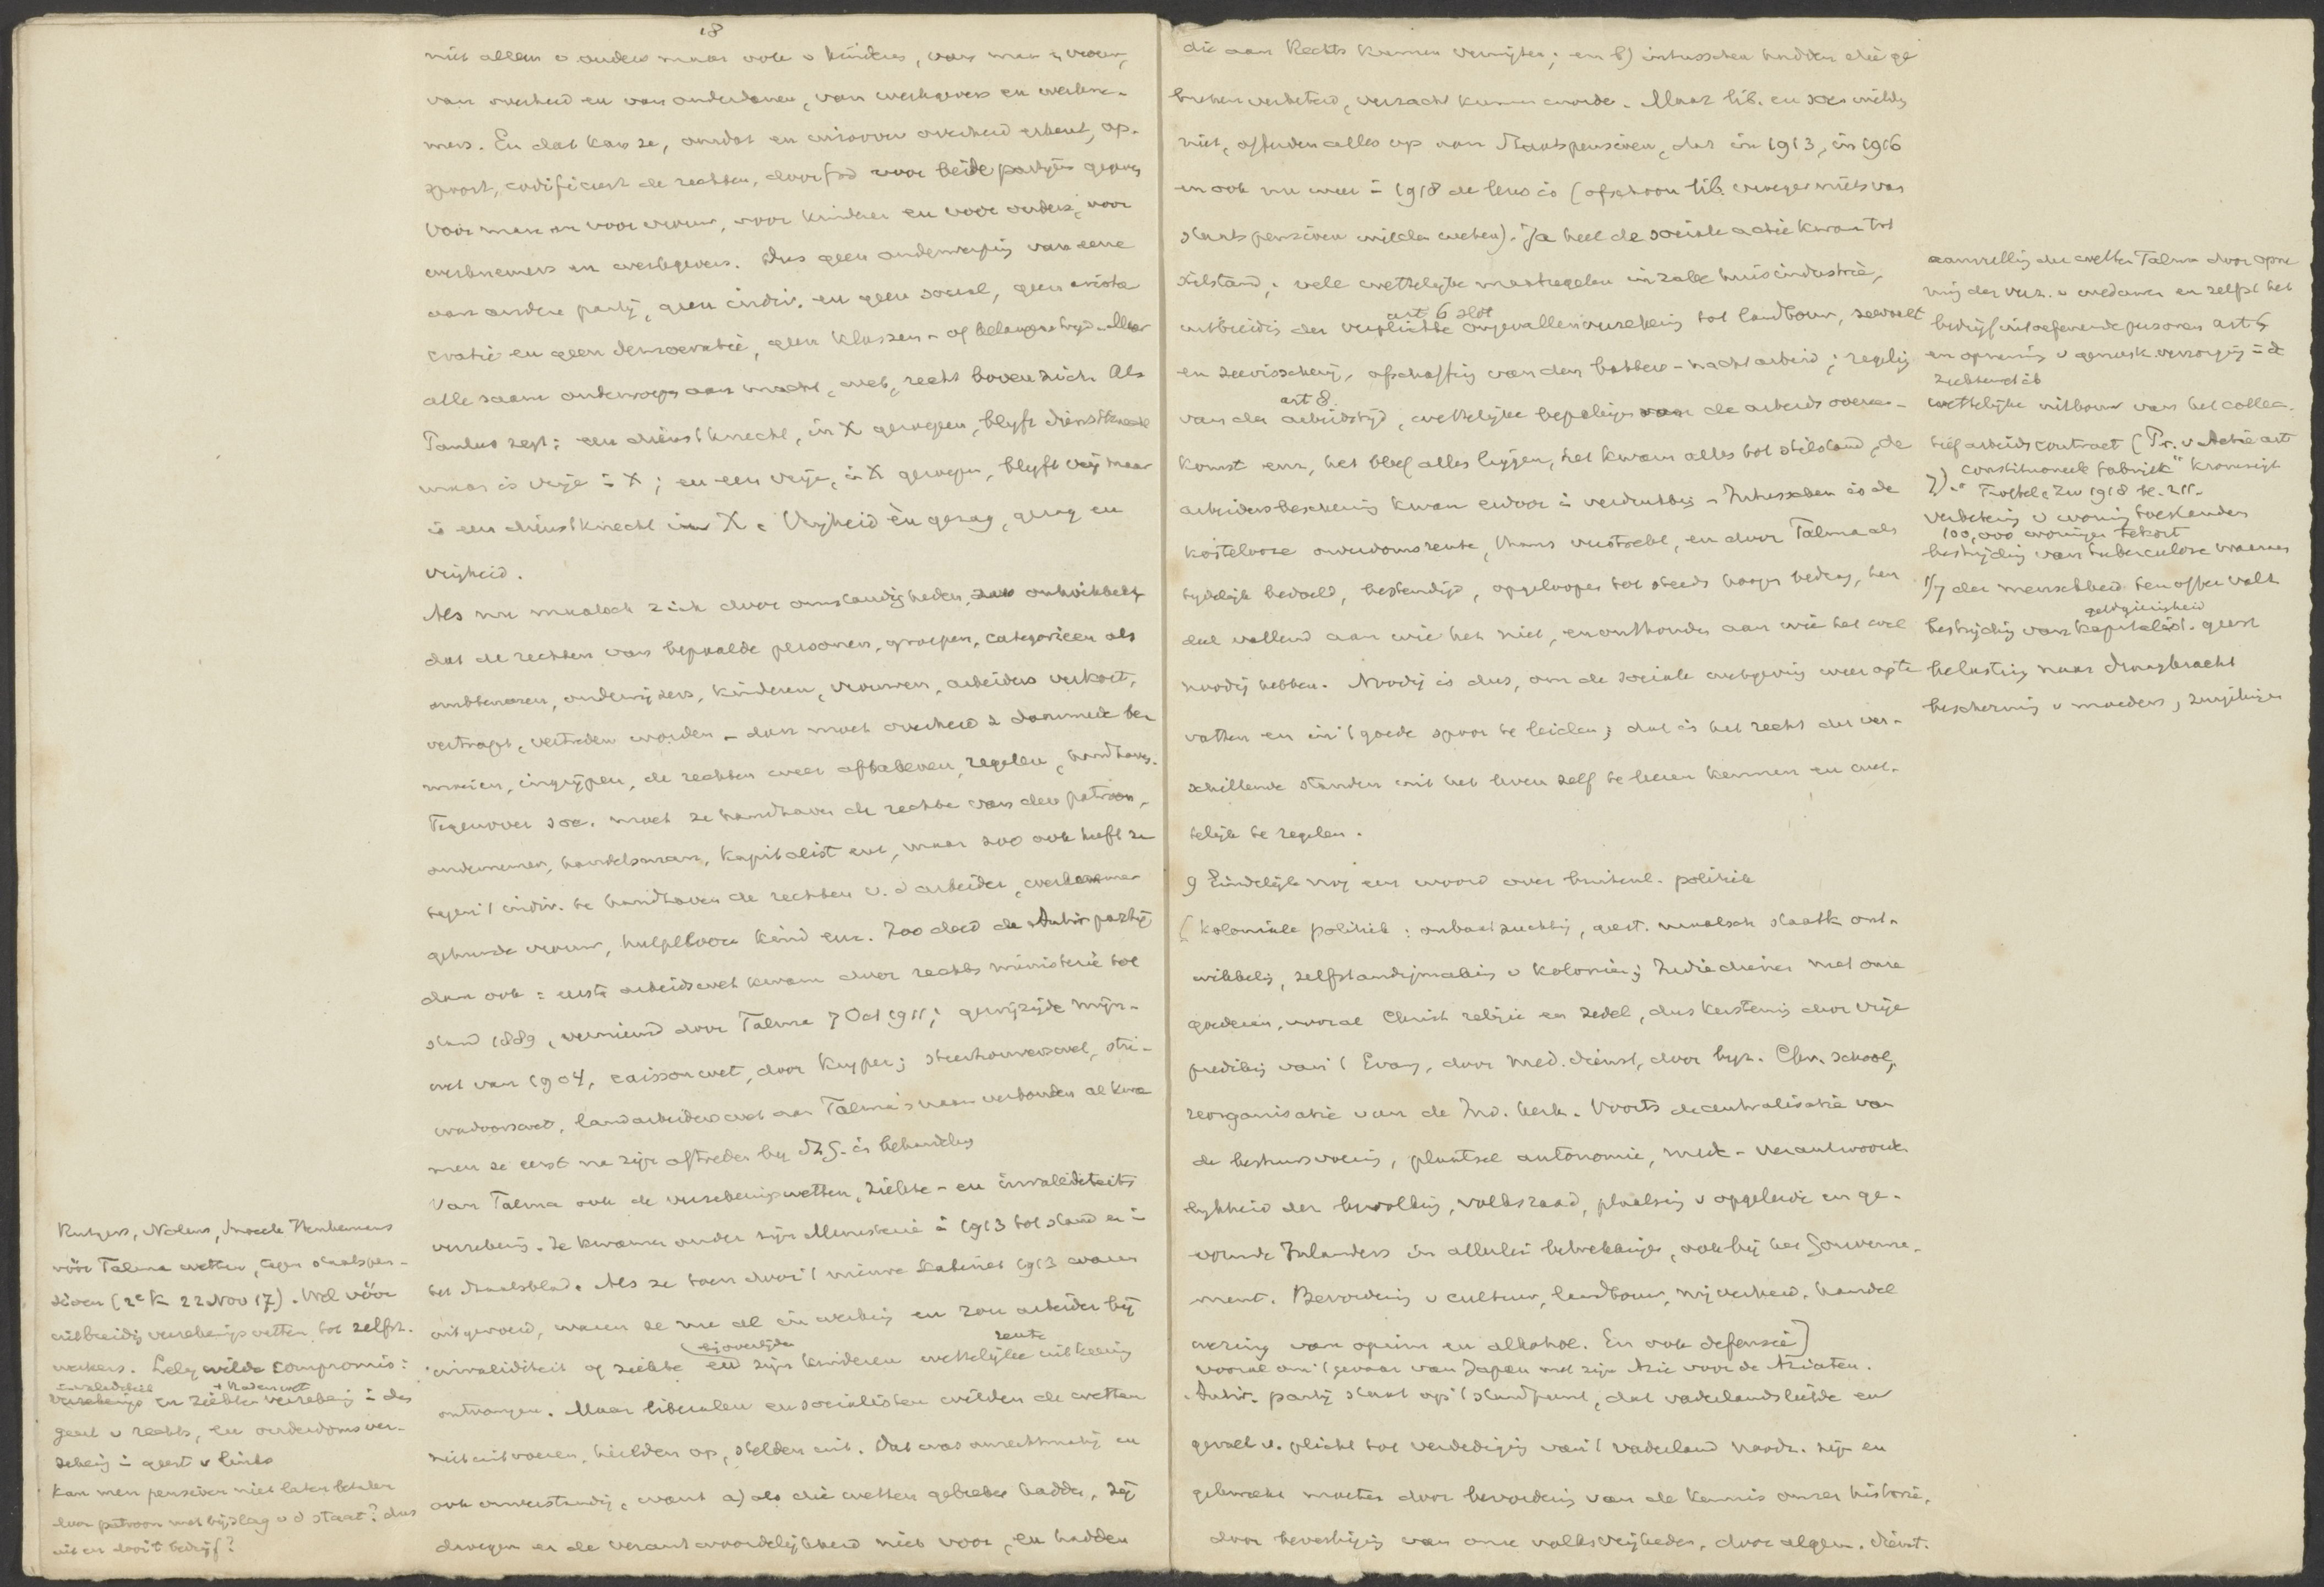 18
niet alleen v ouders maar ook v kinderen, van man en vrouw,
van overheid en van onderdanen, van werkgevers en werkne-
mers. En dat kan ze, omdat en in zoover overheid erkent, op-
spoort, codificeert de rechten, door God voor beide partijen gegeven
voor man en voor vrouw, voor kinderen en voor ouders, voor
werknemers en werkgevers. Dus geen onderwerping van eene
aan andere partij, geen indiv. en geen sociaal, geen aristo
cratie en geen democratie, geen klassen- of belangenstrijd. Maar
alle saam onderworpen aan macht, wet, recht boven zich. Als
Paulus zegt: een dienstknecht, in X geroepen, blijft dienstknecht
maar is vrije in X; en een vrije, in X geroepen, blijft vrij maar
is een dienstknecht in X. Vrijheid èn gezag, gezag en
vrijheid.
Als nu maatsch zich door omstandigheden zoo ontwikkelt
dat de rechten van bepaalde personen, groepen, categorieen als
ambtenaren, onderwijzers, kinderen, vrouwen, arbeiders verkort,
vertrapt, vertreden worden – dan moet overheid z daarmede be-
moeien, ingrijpen, de rechten weer afbakenen, regelen, handhaven.
Tegenover soc. moet ze handhaven de rechten van den patroon,
ondernemer, handelsman, kapitalist enz, maar zoo ook heeft ze
tegen 't indiv. te handhaven de rechten v. d arbeider,
gehuwde vrouw, hulpeloos kind enz. Zoo deed de Antir. partij
dan ook: eerste arbeidswet kwam door rechts ministerie tot
stand 1889, vernieuwd door Talma 7 Oct 1911; gewijzigde mijn-
wet van 1904, caissonwet, door Kuyper; steenhouwerswet, stu-
wadoorswet, landarbeiderswet aan Talma's naam verbonden al kwa
men ze eerst na zijn aftreden bij in behandeling
Van Talma ook de verzekeringswetten, ziekte- en invaliditeits
verzekering. Ze kwamen onder zijn Ministerie in 1913 tot stand en in
het Staatsblad. Als ze toen door 't nieuwe Kabinet 1913 waren
uitgevoerd, waren ze nu al in werking en zou arbeider bij
bij overlijden rente
invaliditeit of ziekte en zijn kinderen wettelijke uitkeering
ontvangen. Maar liberalen en socialisten wilden de wetten
niet uitvoeren, hielden op, stelden uit. Dat was onrechtmatig en
ook onverstandig, want a) als die wetten gebreken hadden, zij
droegen er de verantwoordelijkheid niet voor, en hadden
Rutgers, Nolens, Snoeck Henkemans
vóór Talma wetten, tegen staatspen-
sioen (2e K 22 Nov 17). Wel vóór
uitbreiding verzekeringswetten tot zelfst.
werkers. Lely wilde compromis:
invaliditeit + Radenwet
verzekering en ziekte verzekering in den
geest v rechts, en ouderdomsver-
zekering in geest v links
Kan men pensioen niet laten betalen
door patroon met bijslag v d staat? dus
uit en door 't bedrijf?
die aan Rechts kunnen verwijten; en b) intusschen hadden die ge
breken verbeterd, verzacht kunnen worden. Maar lib. en soc. wilden
niet, offerden alles op aan Staatspensioen, dat in 1913, in 1916
en ook nu weer in 1918 de leus is (ofschoon lib. vroeger niets van
staatspensioen wilden weten). Ja heel de sociale actie kwam tot
stilstand; vele wettelijke maatregelen inzake huisindustrie,
art 6 slot
uitbreiding der verplichte ongevallenverzekering tot landbouw, zeevaart
en zeevisscherij, afschaffing van den bakkers-nachtarbeid; regeling
art 8
van den arbeidstijd, wettelijke bepalingen van de arbeidsovereen-
komst enz, het bleef alles liggen, het kwam alles tot stilstand, de
arbeidersbescherming kwam erdoor in verdrukking. Intusschen is de
kostelooze ouderdomsrente, thans verstrekt, en door Talma als
tijdelijk bedoeld, bestendigd, opgeloopen tot steeds hooger bedrag, ten
deel vallend aan wie het niet, en onthouden aan wie het wel
noodig hebben. Noodig is dus, om de sociale wetgeving weer op te
vatten en in 't goede spoor te leiden; dat is het recht der ver-
schillende standen uit het leven zelf te leeren kennen en wet-
telijk te regelen.
9 Eindelijk nog een woord over buitenl. politiek
[Koloniale politiek: onbaatzuchtig, geest. maatsch staatk ont-
wikkeling, zelfstandigmaking v koloniën; Indië dienen met onze
goederen, vooral Christ religie en zedel, dus kerstening door vrije
prediking van 't Evang, door med. dienst, door byz. Chr. school,
reorganisatie van de Ind. kerk. Voorts decentralisatie van
de bestuursvoering, plaatsel autonomie, mede-verantwoorde
lijkheid der bevolking, volksraad, plaatsing v opgeleide en ge-
vormde Inlanders in allerlei betrekkingen, ook bij het Gouverne-
ment. Bevordering v cultuur, landbouw, nijverheid, handel
wering van opium en alkohol. En ook defensie]
vooral om 't gevaar van Japan met zijn Azie voor de Aziaten.
Antir. partij staat op 't standpunt, dat vaderlandsliefde en
gevoel v. plicht tot verdediging van 't vaderland noodz. zijn en
gekweekt moeten door bevordering van de kennis onzer historie,
door bevestiging van onze volksvrijheden, door algem. dienst.
aanvulling der wetten Talma door opne
ming der verz. v weduwen en zelfst het
bedrijf uitoefenende personen art 5
en opneming v geneesk. verzorging in de
ziektewet ib
wettelijke uitbouw van het collec-
tief arbeidscontract (Pr. v Actie art
7). "constitutioneele fabriek" Kromsigt
Troffel en Zw 1918 bl. 211.
verbetering v woningtoestanden
100,000 woningen tekort
bestrijding van tuberculose waaraan
1/7 der menschheid ten offer valt
geldgierigheid
bestrijding van kapitalist. geest
belasting naar draagkracht
bescherming v moeders, zuigelingen